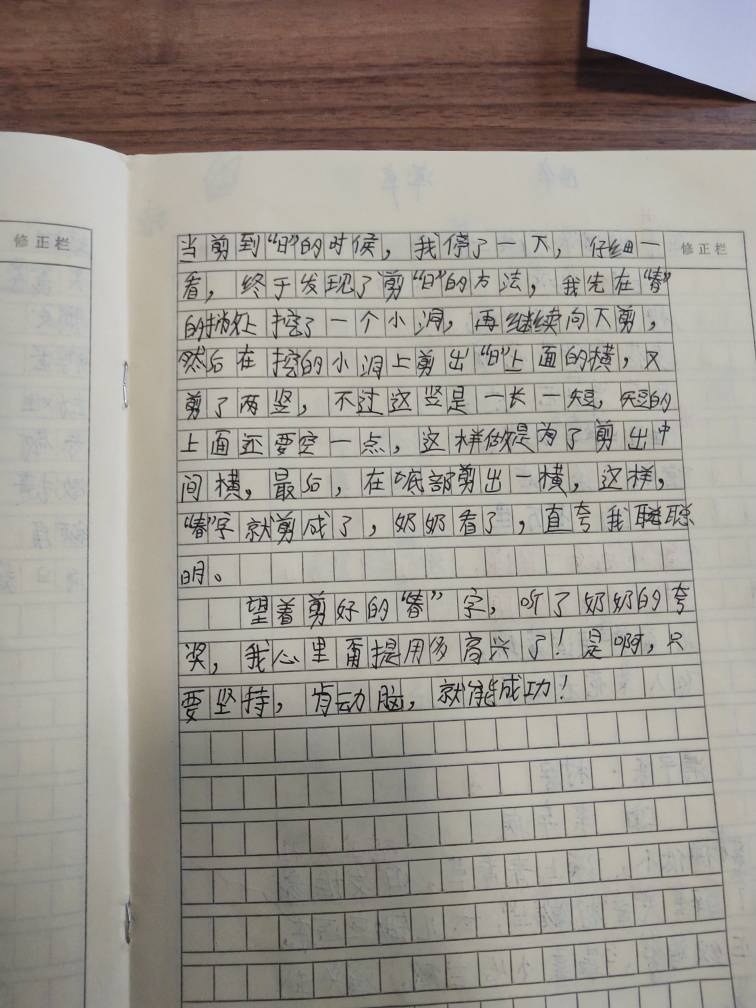 修正栏
修正栏
当剪到“日”的时候，我停了一下，仔细一
看，终于发现了剪“日”的方法，我先在“春”
的捎处上挖了一个小洞，再继续向下剪，
然后在挖的小洞上剪出“日”上面的横，又
剪了两竖，不过这竖是一长一短，短的
上面还要空一点，这样做是为了剪出中
间横，最后，在底部剪出一横，这样，
“春”字就剪成了，奶奶看了，直夸我聪
明。
望着剪好的“春”字，听了奶奶的夸
奖，我心里甭提用多高兴了！是啊，只
要坚持，肯动脑，就能成功！